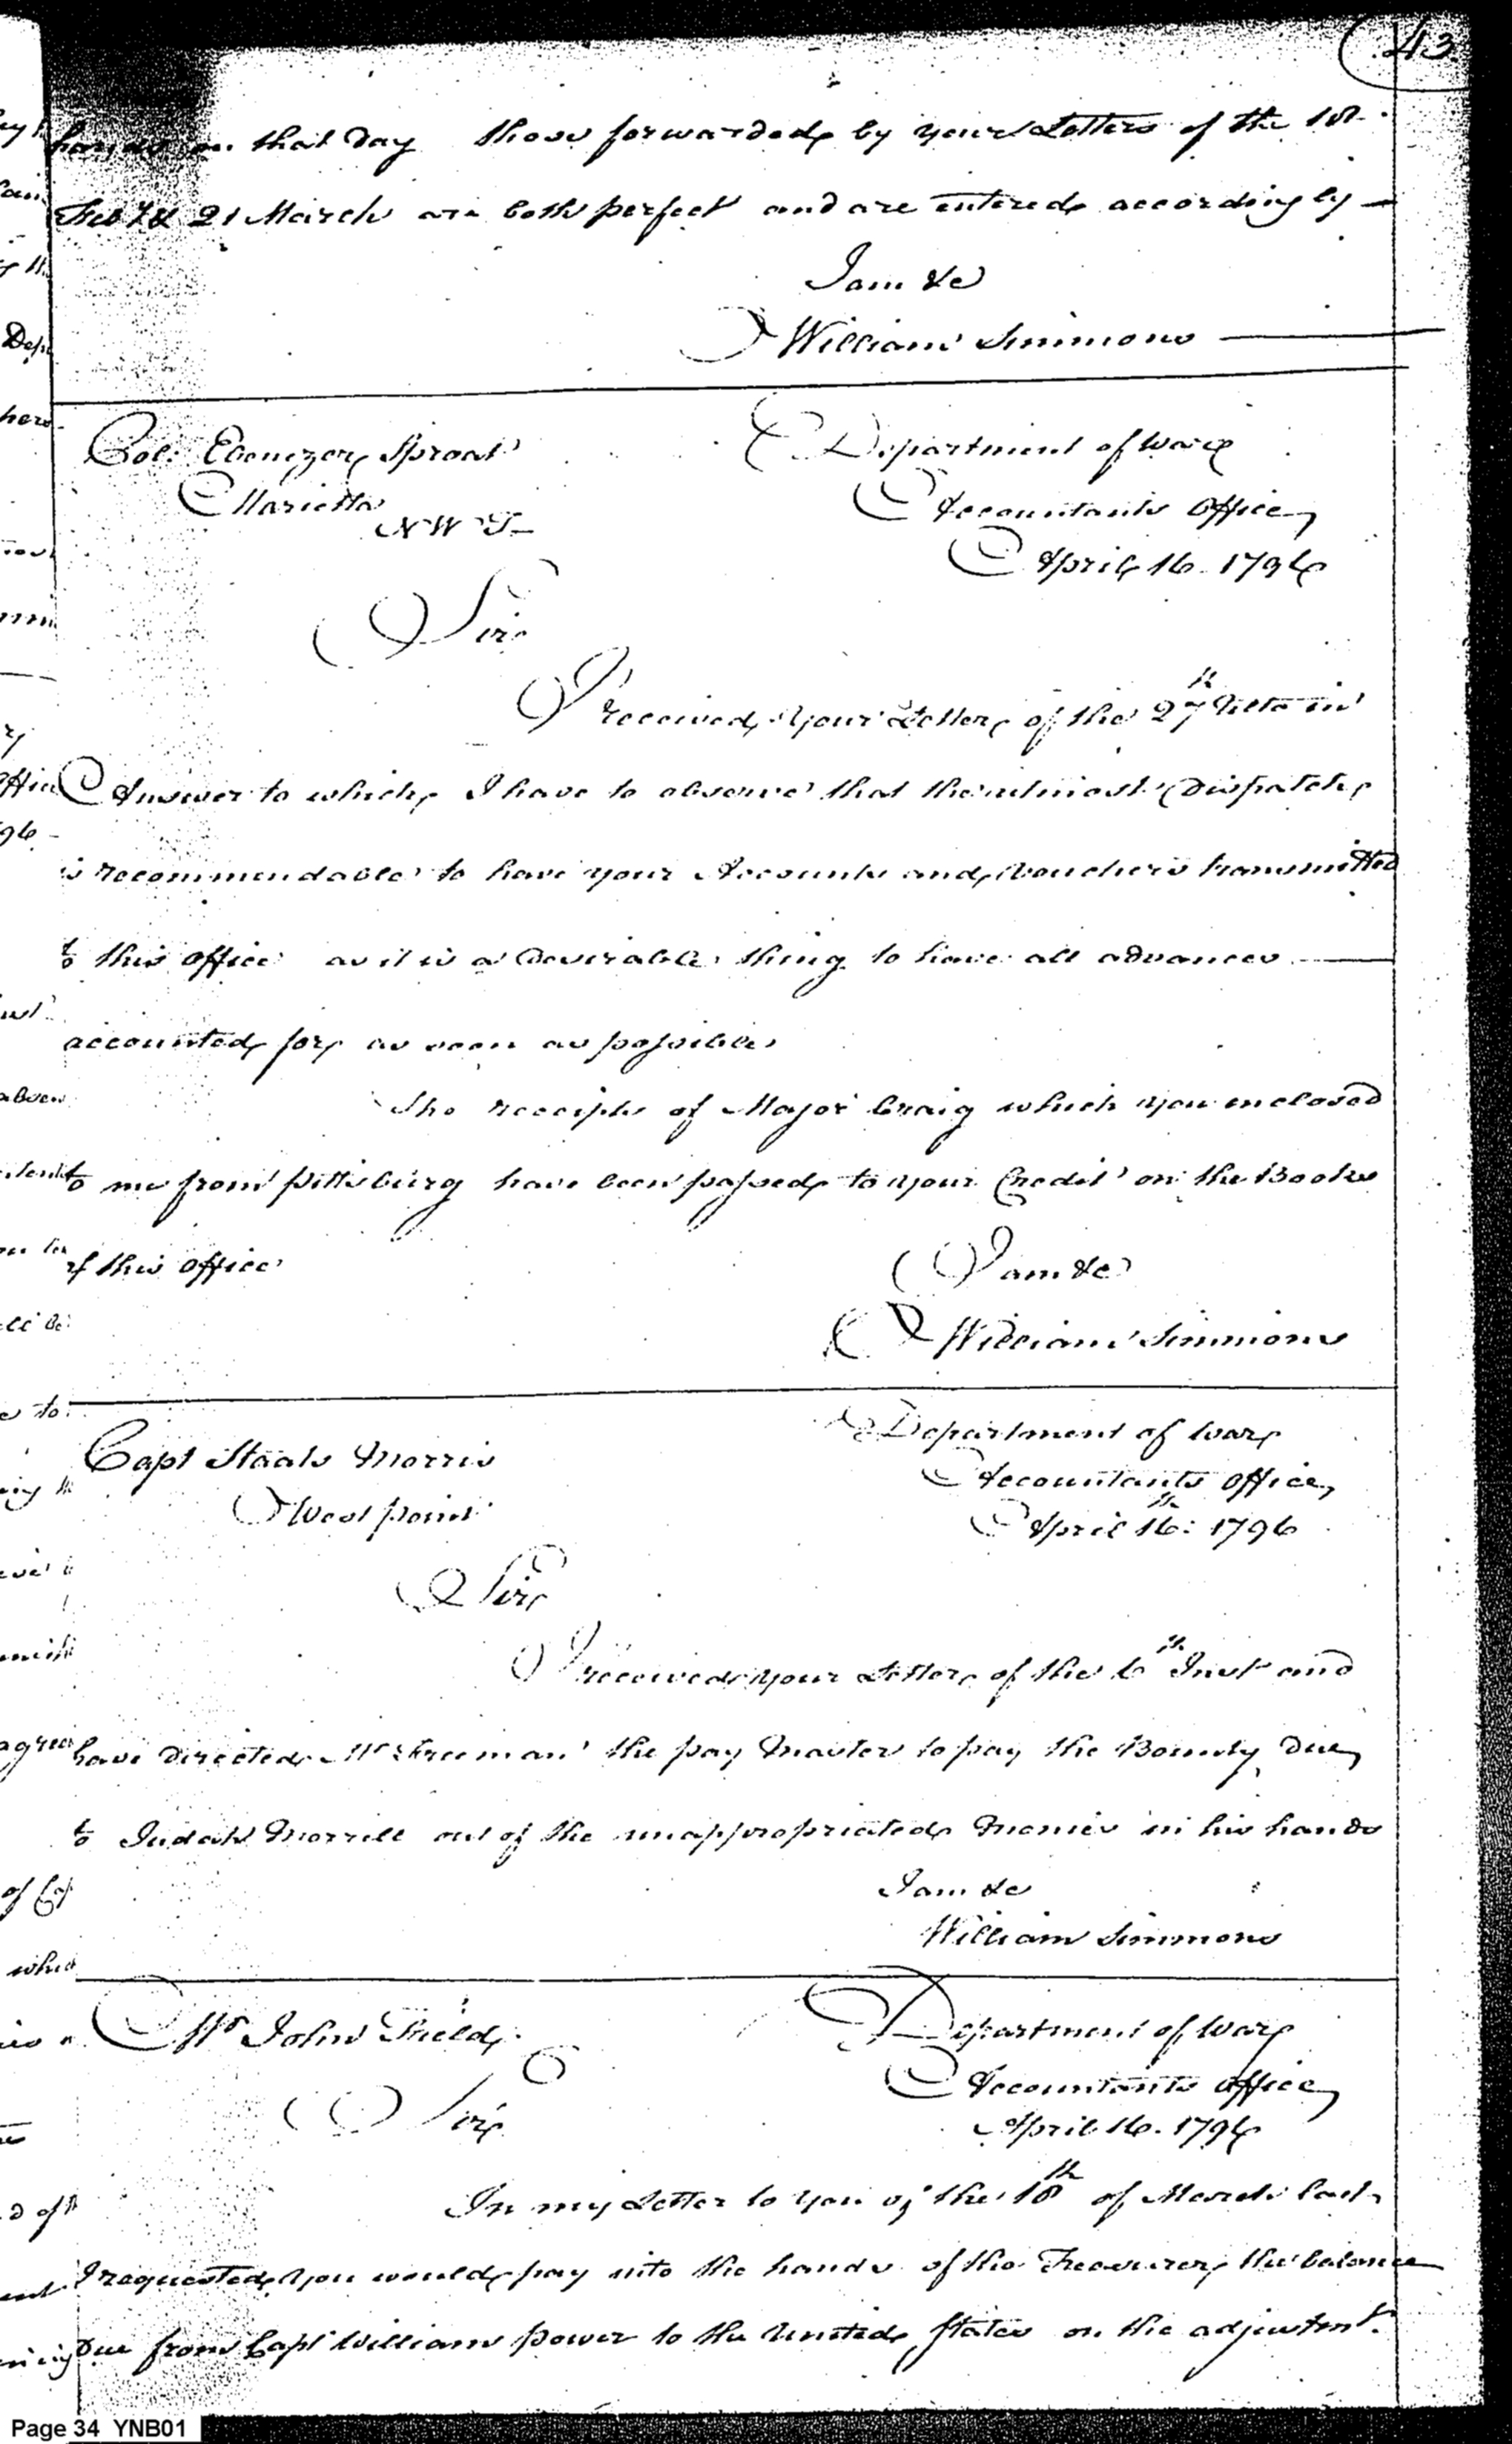 43.
hands on that Day those forwarded by your Letters of the 18
Feby & 21 March are both perfect and are entered accordingly —
I am &c
William Simmons
Col. Ebenezer Sproat
Marietta
N W T
Department of War
Accountants Office
April 16. 1796
Sir
I received your Letter of the 27th Ulto in
Answer to which, I have to observe that the utmost Dispatch
is recommendable to have your Accounts and Vouchers transmitted
to this office as it is a Desirable thing to have all advances
accounted for as soon as possible
The receipts of Major Craig which you enclosed
to me from pittsburg have been passed to your Credit on the Books
of this office
I am &c
William Simmons
Capt Staats Morris
West point
Department of War
Accountants Office
April 16th: 1796
Sir
I received your Letter of the 6th Inst and
have Directed Mr Freeman the pay Master to pay the Bounty Due
to Judah Morrill out of the unappropriated Monies in his hands
I am &c
William Simmons
Mr John Shield
Sir
Department of War
Accountants Office
April 16. 1796
In my Letter to you of the 18th of March last
I requested you would pay into the hands of the Treasurer, the balance
Due from Capt William Power to the United States on the adjustmt.
Page 34 YNB01